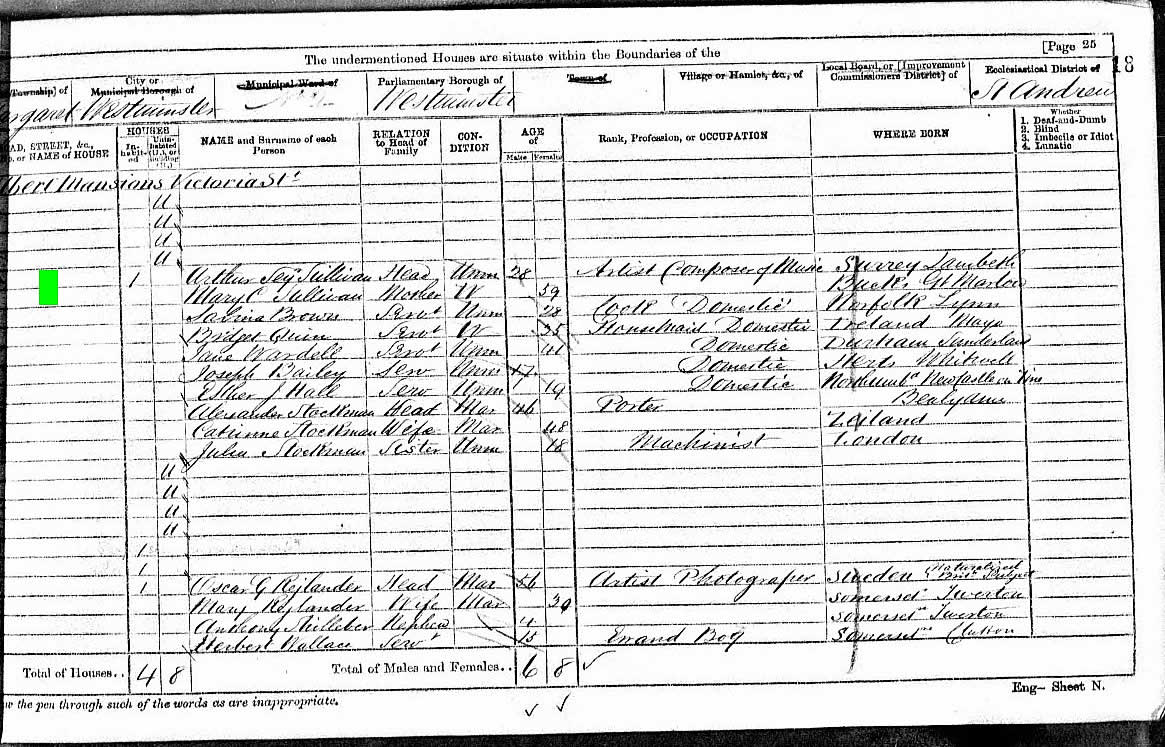 [Page 25
18
The undermentioned Houses are situate within the Boundaries of the
Township] of City or Municipal Borough of Municipal Ward of Parliamentary Borough of Town of Village or Hamlet, &c., of Local Board, or [Improvement Commissioners District] of Ecclesiastical District of
rgaret Westminster Westminster St Andrew
AD, STREET, &c., o. or NAME of HOUSE HOUSES In-habit-ed Unin-habited (U.), or Building (B.) NAME and Surname of each Person RELATION to Head of Family CON-DITION AGE of Males Females Rank, Profession, or OCCUPATION WHERE BORN Whether 1. Deaf-and-Dumb 2. Blind 3. Imbecile or Idiot 4. Lunatic
lbert Mansions Victoria St
U
U
U
U
1 Arthur Sey Sullivan Head Unm 28 Artist Composer of Music Surrey Lambeth
Mary C Sullivan Mother W 59 Bucks Gt Marlow
Sabina Brown Servt Unm 28 Cook Domestic Norfolk Lynn
Bridget Quin Servt W 35 Housemaid Domestic Ireland Mayo
Jane Wardell Servt Unm 41 Domestic Durham Sunderland
Joseph Bailey Serv Unm 17 Domestic Herts Whitwell
Esther J Hall Serv Unm 19 Domestic Northumb Newcastle on Tine
Alexander Stockman Head Mar 46 Porter
Catrinne Stockman Wife Mar 48 Zeiland
Julia Stockman Sister Unm 18 Machinist London
U
U
U
U
1
1
1 Oscar G Rejlander Head Mar 56 Artist Photograper Sweden Naturalized Brit Subject
Mary Rejlander Wife Mar 39 Somerset Twerton
Anthony Nephew 4 Somerset Twerton
Herbert Wallace Servt 15 Errand Boy Somerset Clutton
Total of Houses.. 4 8 Total of Males and Females.. 6 8
w the pen through such of the words as are inappropriate.
Eng- Sheet N.